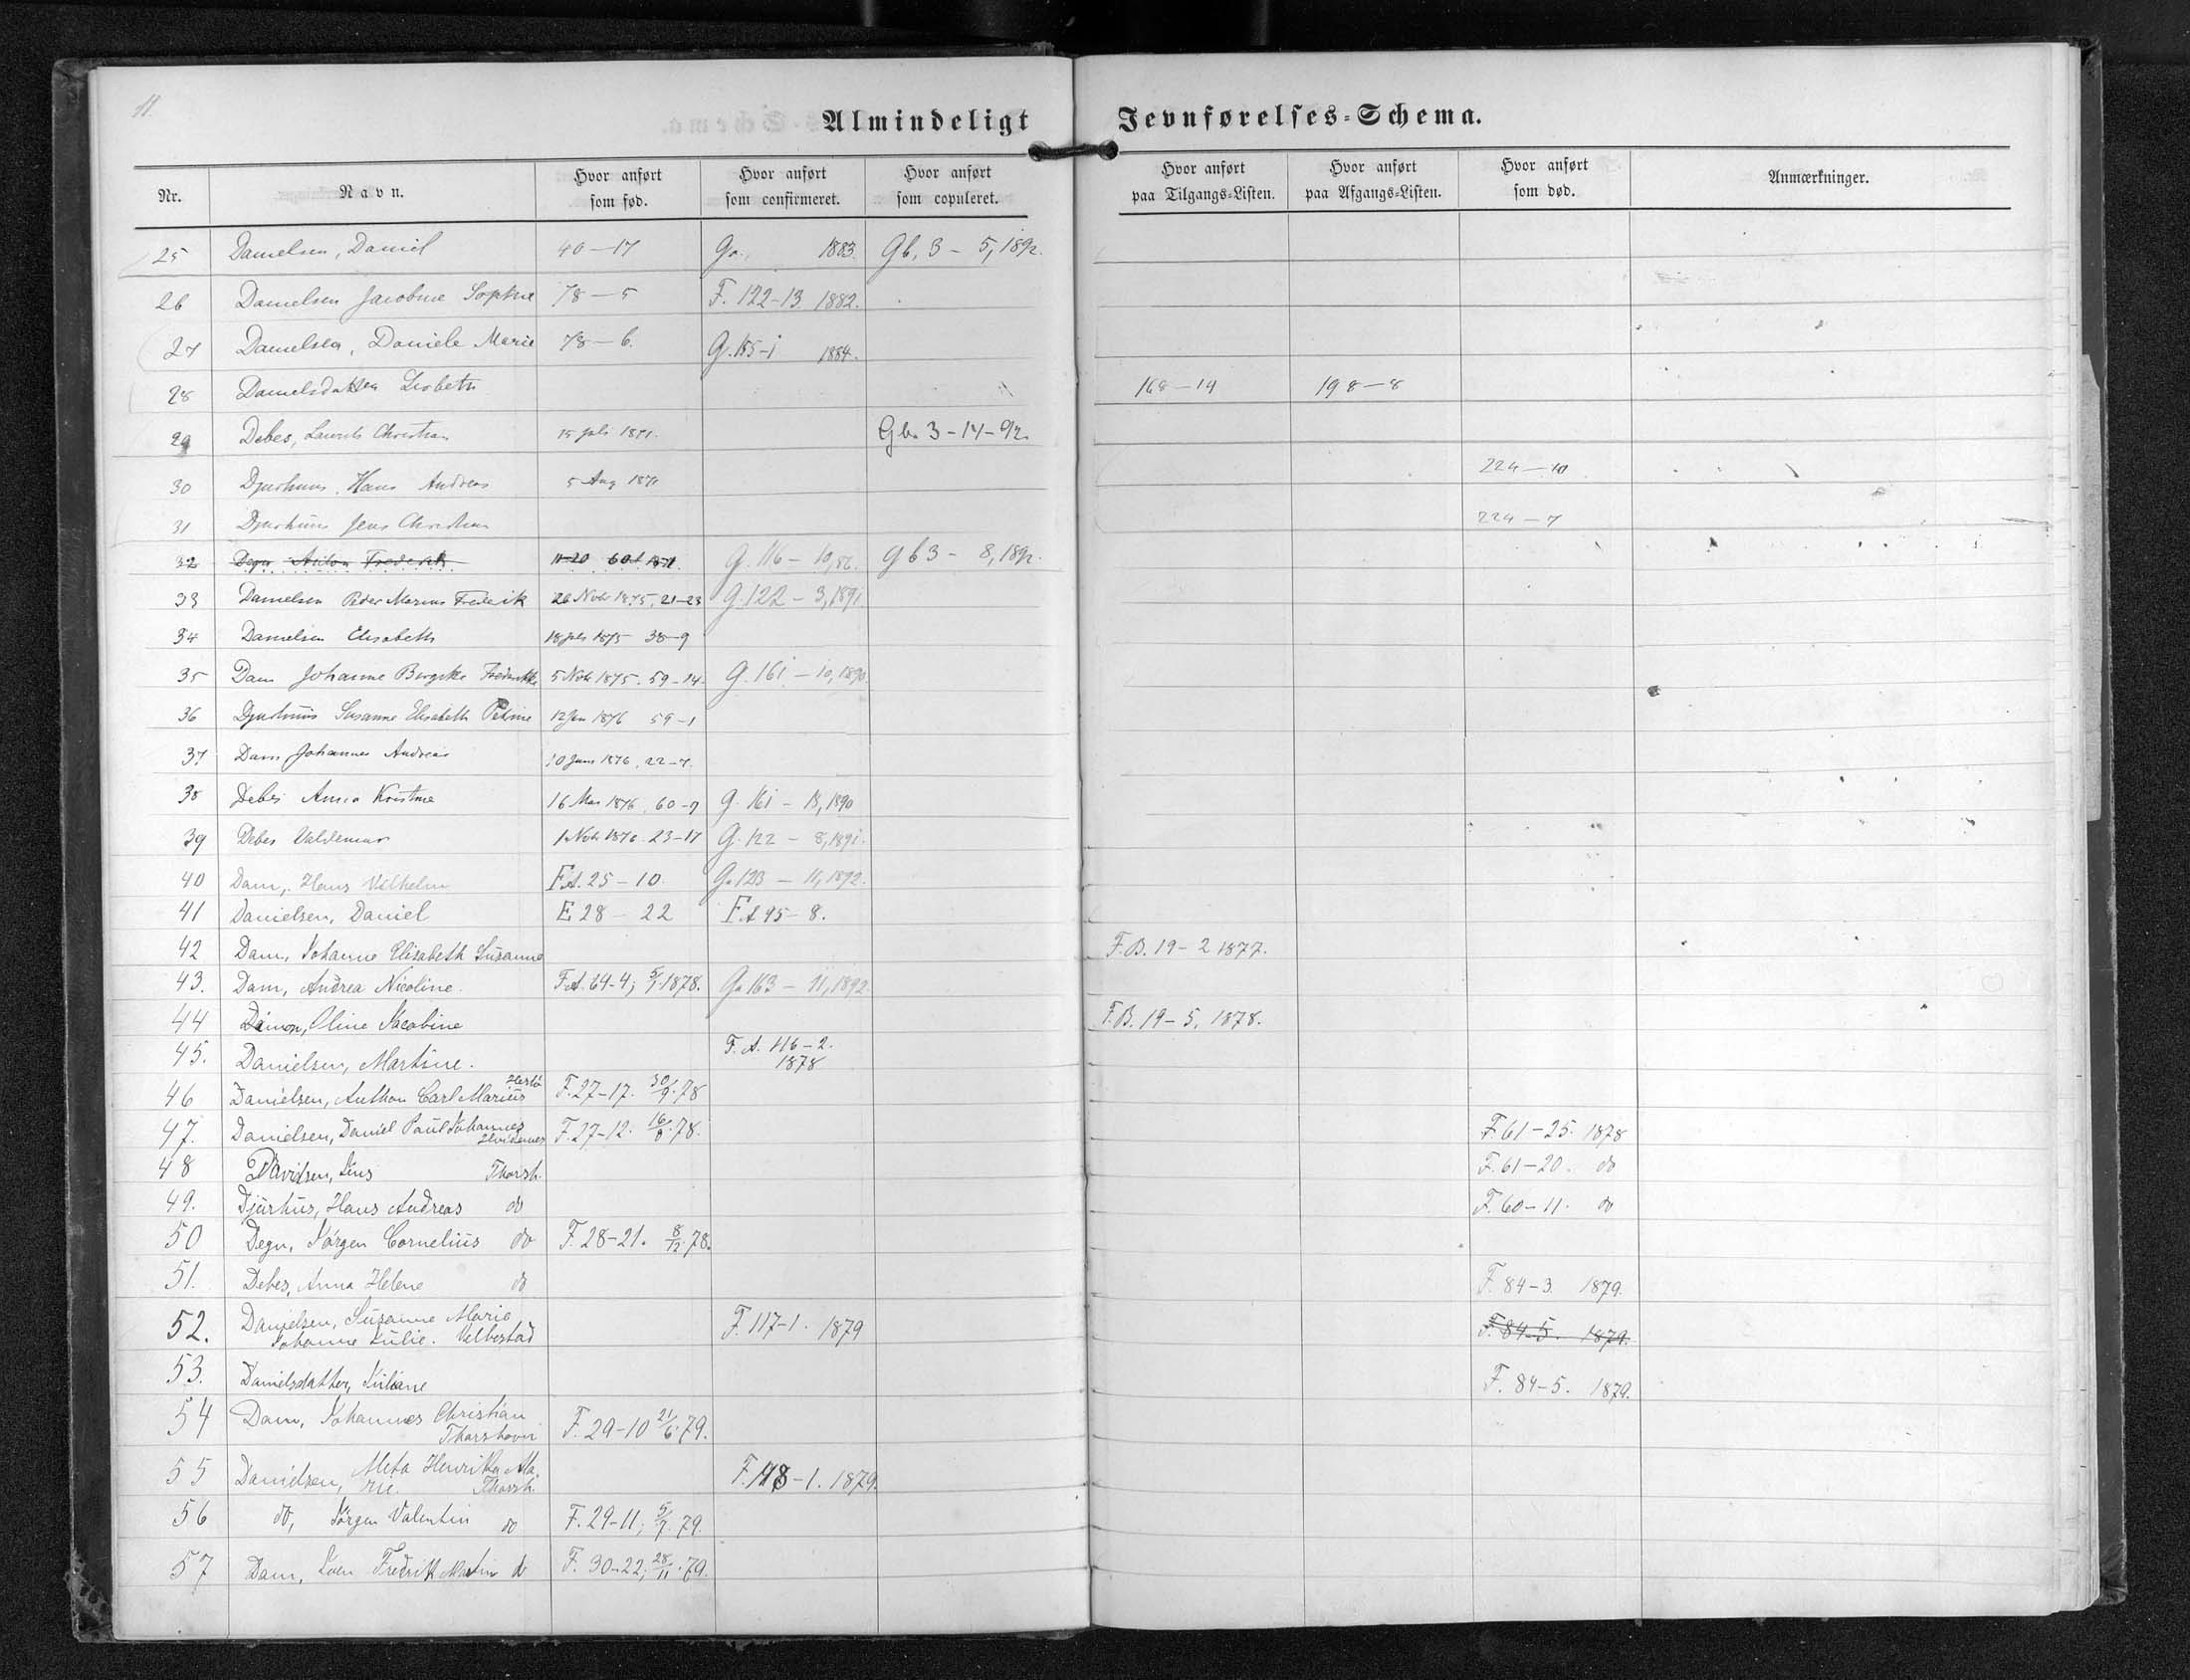 11.
Almindeligt Jevnførelses-Schema.
Nr. Navn. Hvor anført som fød. Hvor anført som confirmeret. Hvor anført som copuleret. Hvor anført paa Tilgangs-Listen. Hvor anført paa Afgangs-Listen. Hvor anført som død. Anmærkninger.
25 Danielsen, Daniel 40-17 Ga. 1883. Gb. 3 - 5, 1892.
26 Danielsen Jacobine Sophie 78-5 F. 122-13 1882.
27 Danielsen, Daniele Marie 78-6. G. 155-1 1884.
28 Danielsdatter Lisbeth 168-14 198-8
29 Debes, Laurits Christian 15 juli 1871. Gb. 3-14-92.
30 Djurhuus, Hans Andreas 5 Aug 1871 224-10
31 Djurhuus Jens Christian 224-7
32 Degn Anton Frederik 11-20 6 Oct 1871. G. 116 - 10, 86. Gb 3 - 8, 1892.
33 Danielsen Peder Marius Frederik 26 Nov 1875, 21-23 G. 122 - 3, 1891
34 Danielsen Elisabeth 18 juli 1875 38-9
35 Dam Johanne Bergitte Frederikke 5 Nov 1875. 59-14. G. 161 - 10, 1890.
36 Djurhuus Susanne Elisabeth Petrine 12 Jan 1876 59-1
37 Dam Johannes Andreas 10 Juni 1876. 22-7.
38 Debes Anna Kristine 16 Mar 1876. 60-7 G. 161 - 18, 1890
39 Debes Valdemar 1 Nov 1876. 23-17 G. 122 - 8, 1891.
40 Dam, Hans Vilhelm F.A. 25-10. G. 123 - 11, 1892.
41 Danielsen, Daniel E 28 - 22 F.A 95-8.
42 Dam, Johanne Elisabeth Susanne F.B. 19-2 1877.
43. Dam, Andrea Nicoline. F.A. 64-4; 5/1 1878. Ga 163 - 11, 1892
44 Dímon, Oline Jacobine F.B. 19-5, 1878.
45. Danielsen, Martine. F.A. 116-2. 1878
46 Danielsen, Anthon Carl Marius Hestø F. 27-17. 30/9 78
47. Danielsen, Daniel Paul Johannes Hvidenæs F. 27-12. 16/8 78. F. 61-25. 1878
48 Davidsen, Jens Thorsh. F. 61-20. do
49. Djurhus, Hans Andreas do F. 60-11. do
50 Degn, Jörgen Cornelius do F. 28-21. 8/12 78.
51. Debes, Anna Helene do F. 84-3. 1879.
52. Danielsen, Susanne Marie
Johanne Julie. Velbestad F. 117-1. 1879 F. 84-5. 1879.
53. Danielsdatter, Juliane F. 84-5. 1879.
54 Dam, Johannes Christian
Thorshavn F. 29-10 21/6 79.
55 Danielsen, Meta Henrikka Ma-
rie. Thorsh. F. 118-1. 1879.
56 do, Jörgen Valentin do F. 29-11; 5/7. 79.
57 Dam, Joen Fredrik Martin do F. 30-22; 28/11. 79.